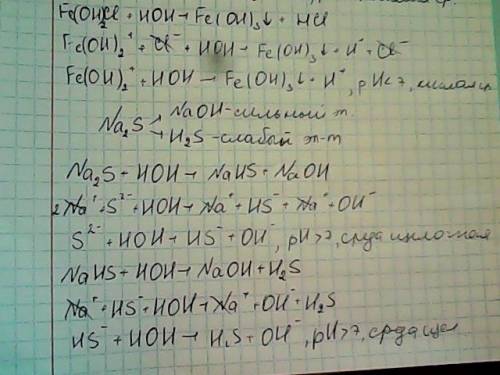 Fe(OH)₂Cl + HOH → Fe(OH)₃↓ + HCl
Fe(OH)₂⁺ + Cl⁻ + HOH → Fe(OH)₃↓ + H⁺ + Cl⁻
Fe(OH)₂⁺ + HOH → Fe(OH)₃↓ + H⁺, pH<7,
Na₂S → NaOH-сильный
→ H₂S-слабый эл-т
Na₂S + HOH → NaHS + NaOH
2Na⁺ + S²⁻ + HOH → Na⁺ + HS⁻ + Na⁺ + OH⁻
S²⁻ + HOH → HS⁻ + OH⁻, pH>7, среда щелочная
NaHS + HOH → NaOH + H₂S
Na⁺ + HS⁻ + HOH → Na⁺ + OH⁻ + H₂S
HS⁻ + HOH → H₂S + OH⁻, pH>7, среда щел